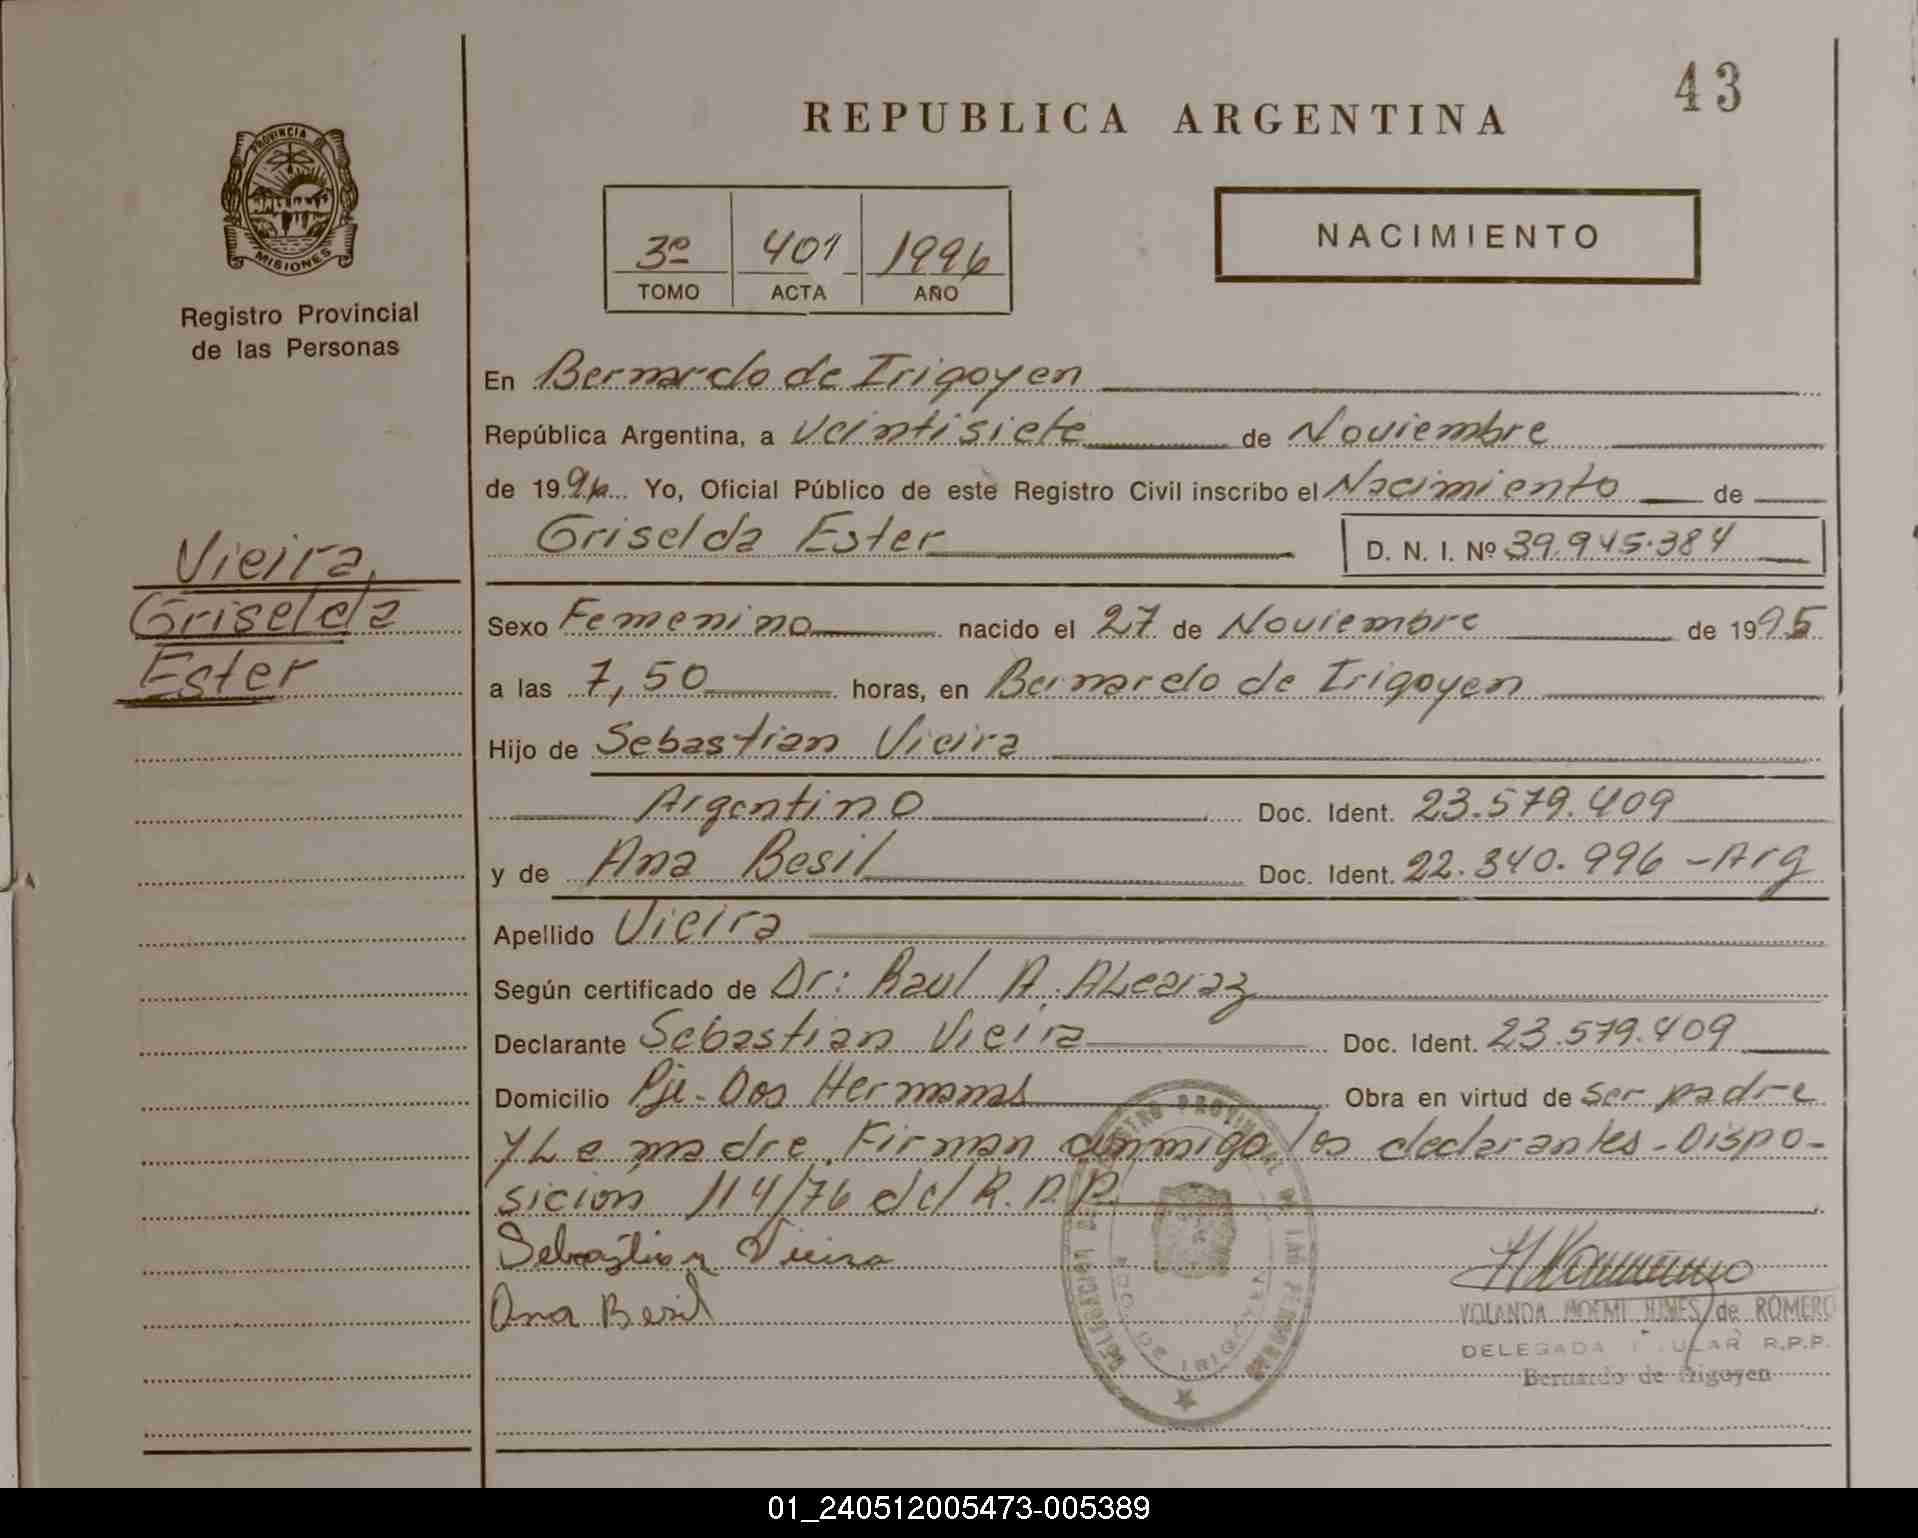 43
REPUBLICA ARGENTINA
PROVINCIA DE
MISIONES
Registro Provincial
de las Personas
3º 401 1996
TOMO ACTA AÑO
NACIMIENTO
En Bernardo de Irigoyen
República Argentina, a veintisiete de Noviembre
de 1996 Yo, Oficial Público de este Registro Civil inscribo el Nacimiento de
Griselda Ester D. N. I. Nº 39.945.384
Vieira,
Griselda
Ester
Sexo Femenino nacido el 27 de Noviembre de 1995
a las 7,50 horas, en Bernardo de Irigoyen
Hijo de Sebastian Vieira
Argentino Doc. Ident. 23.579.409
y de Ana Besil Doc. Ident. 22.340.996 - Arg
Apellido Vieira
Según certificado de Dr: Raul A. ALcaraz
Declarante Sebastian Vieira Doc. Ident. 23.579.409
Domicilio Pje. Dos Hermanas Obra en virtud de ser padre
y La madre. Firman conmigo los declarantes - Dispo-
sicion 114/76 del R.P.P.
Sebastian Vieira
Ana Besil
REGISTRO PROVINCIAL DE LAS PERSONAS
DELEGACION
BDO. DE IRIGOYEN
YOLANDA NOEMI de ROMERO
DELEGADA TITULAR R.P.P.
Bernardo de Irigoyen
01_240512005473-005389